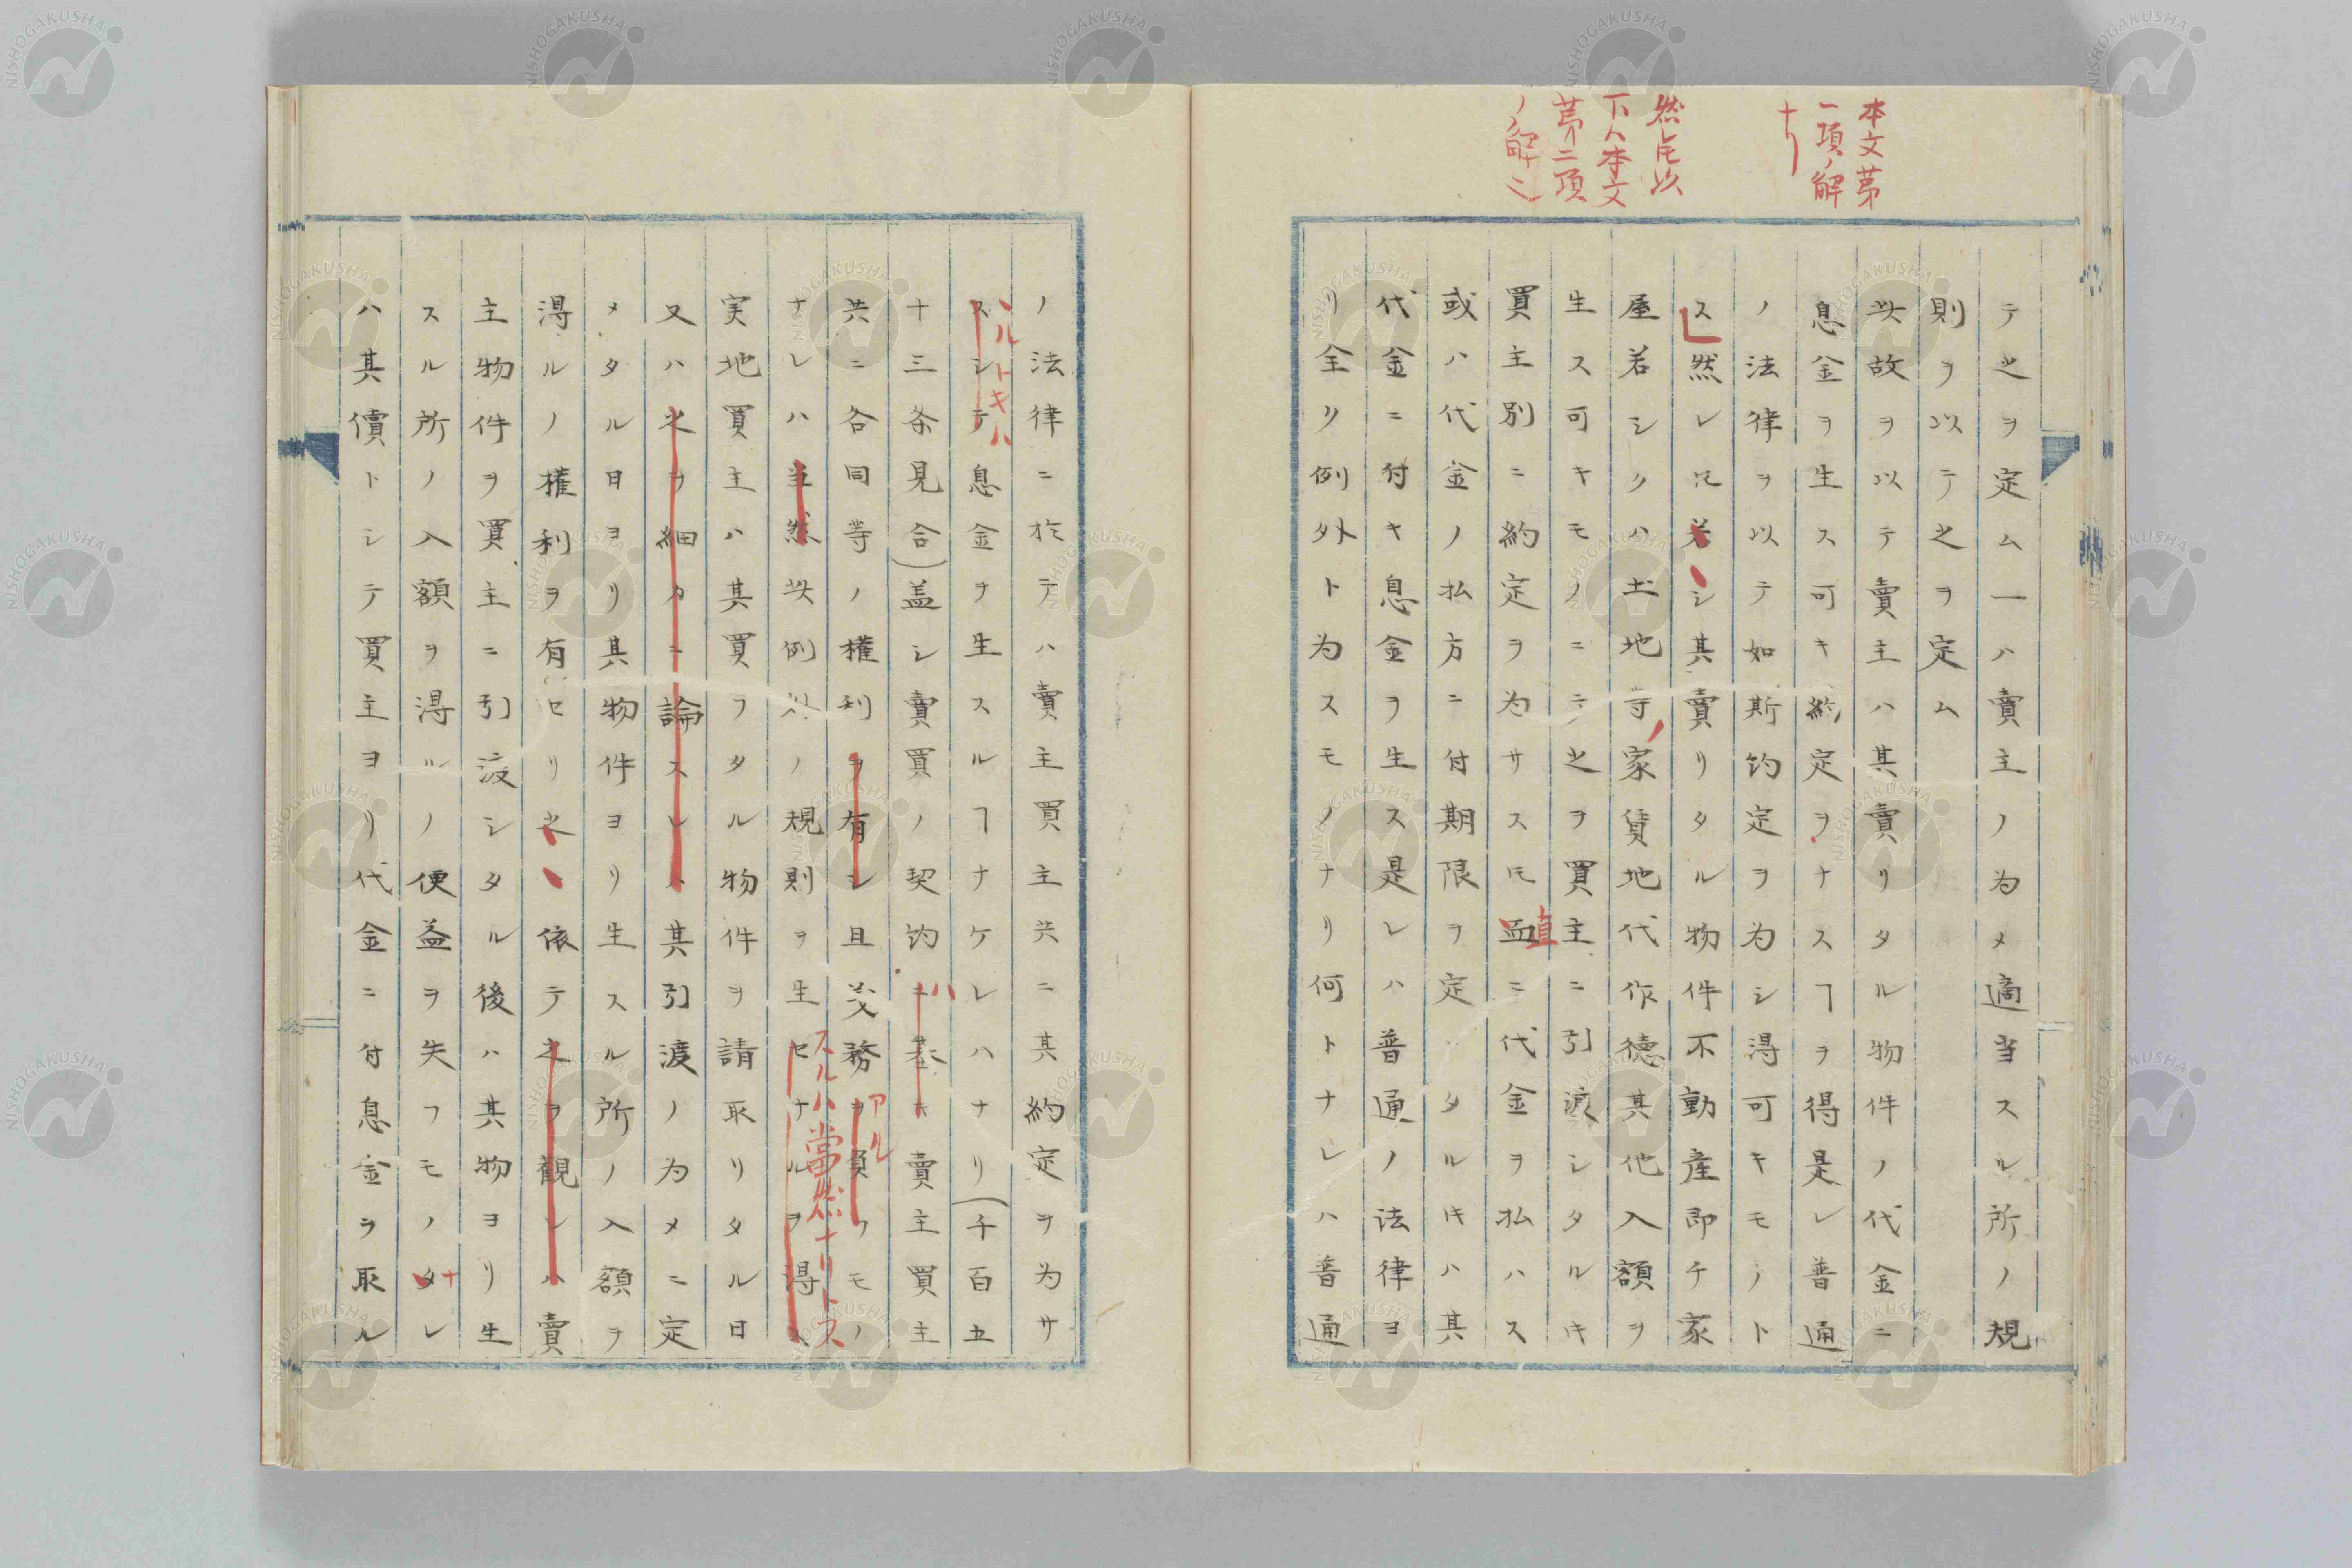 本文苐
一項ノ解
ナリ
然㆑𪜈以
下ハ本文
苐二項
ノ解ニ
テ之ヲ定ム一ハ賣主ノ為メ適当スル所ノ規
則ヲ以テ之ヲ定ム
此故ヲ以テ賣主ハ其賣リタル物件ノ代金ニ
息金ヲ生ス可キ約定ヲナスヿヲ得是レ普通
ノ法律ヲ以テ如斯約定ヲ為シ得可キモノト
ス然レ𪜈若シ其賣リタル物件不動産即チ家
屋若シクハ土地等家賃地代作徳其他入額ヲ
生ス可キモノニテ之ヲ買主ニ引渡シタルキ
買主別ニ約定ヲ為サスモ直ニ代金ヲ払ハス
或ハ代金ノ払方ニ付期限ヲ定メタルキハ其
代金ニ付キ息金ヲ生ス是レハ普通ノ法律ヨ
リ全ク例外ト為スモノナリ何トナレハ普通
ノ法律ニ於テハ賣主買主共ニ其約定ヲ為サ
スシテ息金ヲ生スルヿナケレハナリ(千百五
ルトキハ
十三条見合)盖シ賣買ノ契約ニ基キ賣主買主
ハ
共ニ各同等ノ権利ヲ有シ且义務ヲ負フモノ
アル
ナレハ当然此例外ノ規則ヲ生セナルヲ得ス
スルハ當然ナリトス
実地買主ハ其買フタル物件ヲ請取リタル日
又ハ之ヲ細カニ論スレハ其引渡ノ為メニ定
メタル日ヨリ其物件ヨリ生スル所ノ入額ヲ
得ルノ権利ヲ有セリ之依テ之ヲ観レハ賣
主物件ヲ買主ニ引渡シタル後ハ其物ヨリ生
スル所ノ入額ヲ得ルノ便益ヲ失フモノタレ
ナ
ハ其價トシテ買主ヨリ代金ニ付息金ヲ取ル
NISHOGAKUSHA